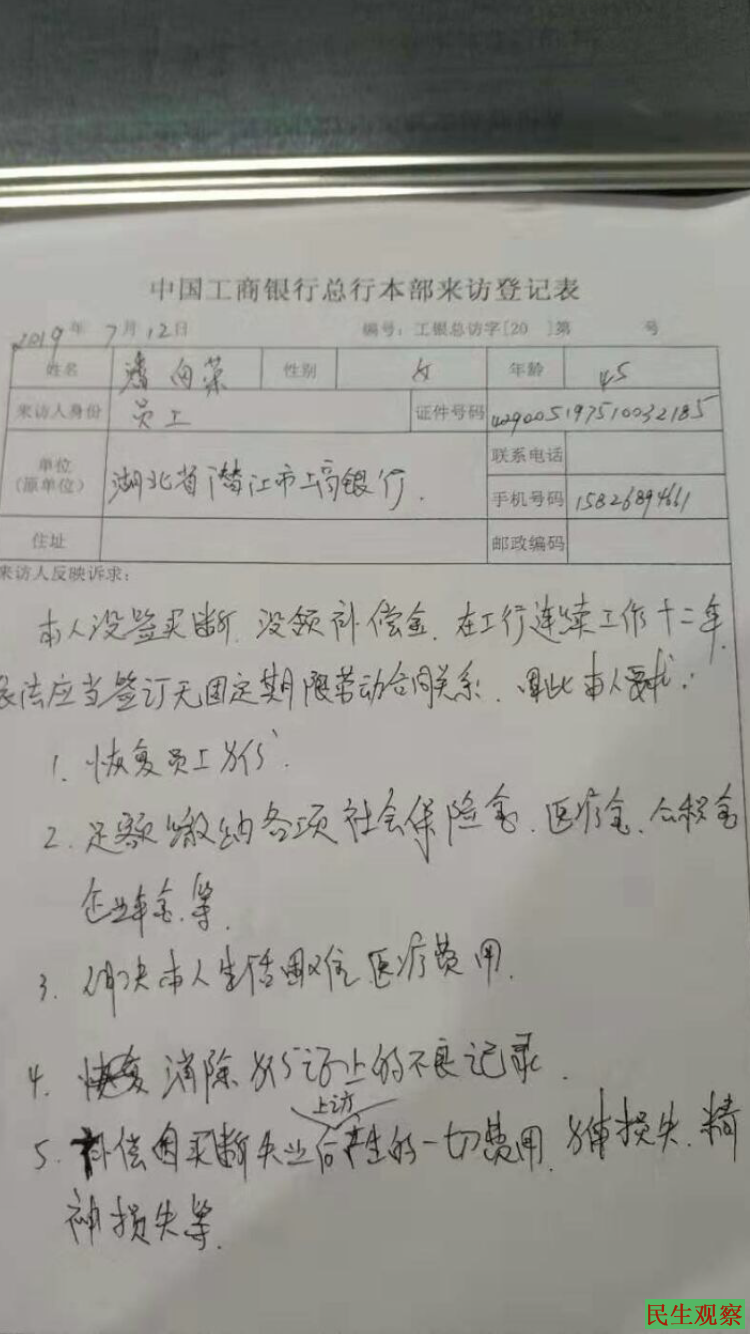 中国工商银行总行本部来访登记表
2019年 7月12日 编号：工银总访字[20 ]第 号
姓名 潘向荣 性别 女 年龄 45
来访人身份 员工 证件号码 429005197510032185
单位（原单位） 湖北省潜江市工商银行. 联系电话
手机号码 15826894661
住址 邮政编码
来访人反映诉求：
本人没签买断、没领补偿金、在工行连续工作十二年、
依法应当签订无固定期限劳动合同关系、因此本人要求：
1. 恢复员工身份.
2. 足额缴纳各项社会保险金、医疗金、公积金
企业年金、等.
3. 解决本人生活困难、医疗费用.
4. 消除身份证上的不良记录.
上访
5. 补偿因买断失业后产生的一切费用、身体损失、精
神损失等.
民生观察